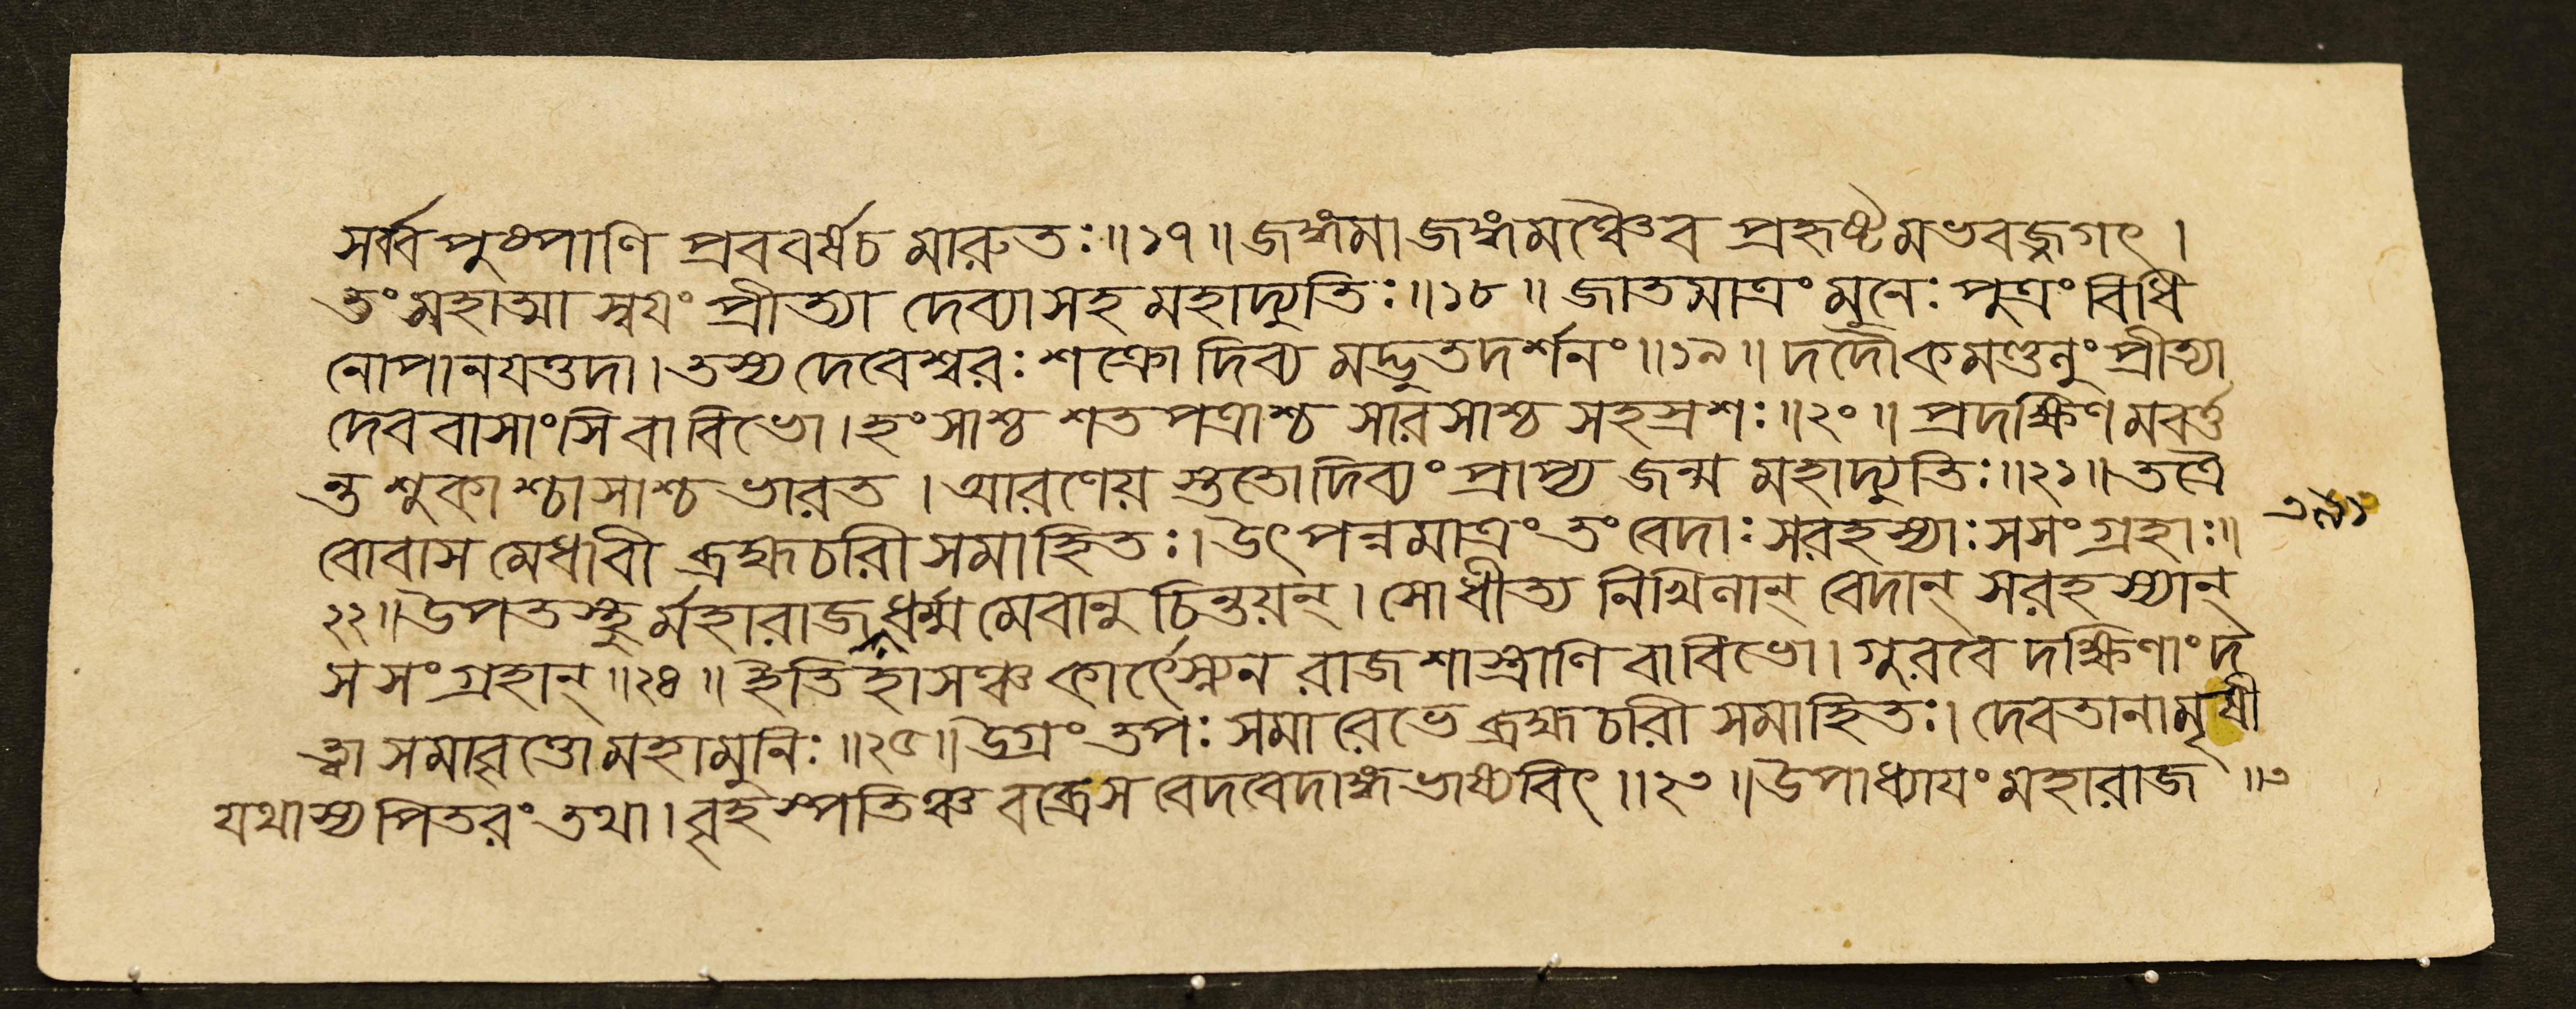 সর্ব্ব পুষ্পাণি প্রববর্ষচ মারুতঃ॥১৭॥ জঙ্গমা জঙ্গমঞ্চৈব প্রহৃষ্টমভবজ্জগৎ।
তং মহাত্মা স্বযং প্রীত্যা দেব্যা সহ মহাদ্যুতিঃ॥১৮॥ জাতমাত্রং মুনেঃ পুত্রং বিধি
নোপানযত্তদা। তস্য দেবেশ্বরঃ শক্রো দিব্য মদ্ভুতদর্শনং॥১৯॥ দদৌ কমণ্ডলুং প্রীত্যা
দেব বাসাংসি বা বিভো। হংসাশ্চ শতপত্রাশ্চ সারসাশ্চ সহস্রশঃ॥২০॥ প্রদক্ষিণ মবর্ত্ত
ন্ত শুকাশ্চাসাশ্চ ভারত। আরণেয় স্তুতো দিব্যং প্রাপ্য জন্ম মহাদ্যুতিঃ॥২১॥ তত্রৈ
বোবাস মেধাবী ব্রহ্মচারী সমাহিতঃ। উৎপন্নমাত্রং তং বেদাঃ সরহস্যাঃ সসংগ্রহাঃ॥
২২॥ উপতস্থু র্মহারাজ ধর্ম্ম মেবানু চিন্তয়ন্। সোধীত্য নিখিলান্ বেদান্ সরহস্যান্
সসংগ্রহান্॥২৪॥ ইতিহাসঞ্চ কার্ৎস্নেন রাজশাস্ত্রাণি বা বিভো। গুরবে দক্ষিণাং দ
ত্ত্বা সমাবৃত্তো মহামুনিঃ॥২৫॥ উগ্রং তপঃ সমারেভে ব্রহ্মচারী সমাহিতঃ। দেবতানামৃষী
যথাস্য পিতরং তথা। বৃহস্পতিঞ্চ বব্রে স বেদবেদাঙ্গ ভাষ্যবিৎ॥২৩॥ উপাধ্যাযং মহারাজ॥৩